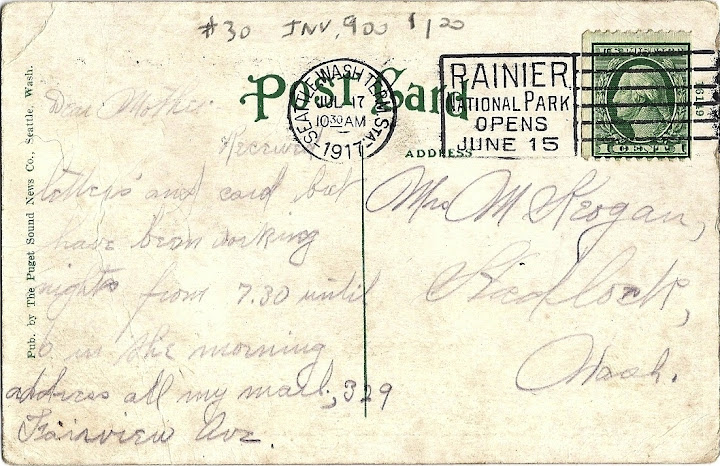 #30 INV. 900 $1.00
Post Card
SEATTLE, WASH. TERM. STA.
JUL 17
10 30 AM
1917
RAINIER
NATIONAL PARK
OPENS
JUNE 15
ADDRESS
Pub. by The Puget Sound News Co., Seattle, Wash.
Dear Mother
Received
letters and card but
have been working
nights from 7.30 until
6 in the morning
address all my mail, 329
Fairview Ave.
Mrs M Keogan,
Hadlock,
Wash.